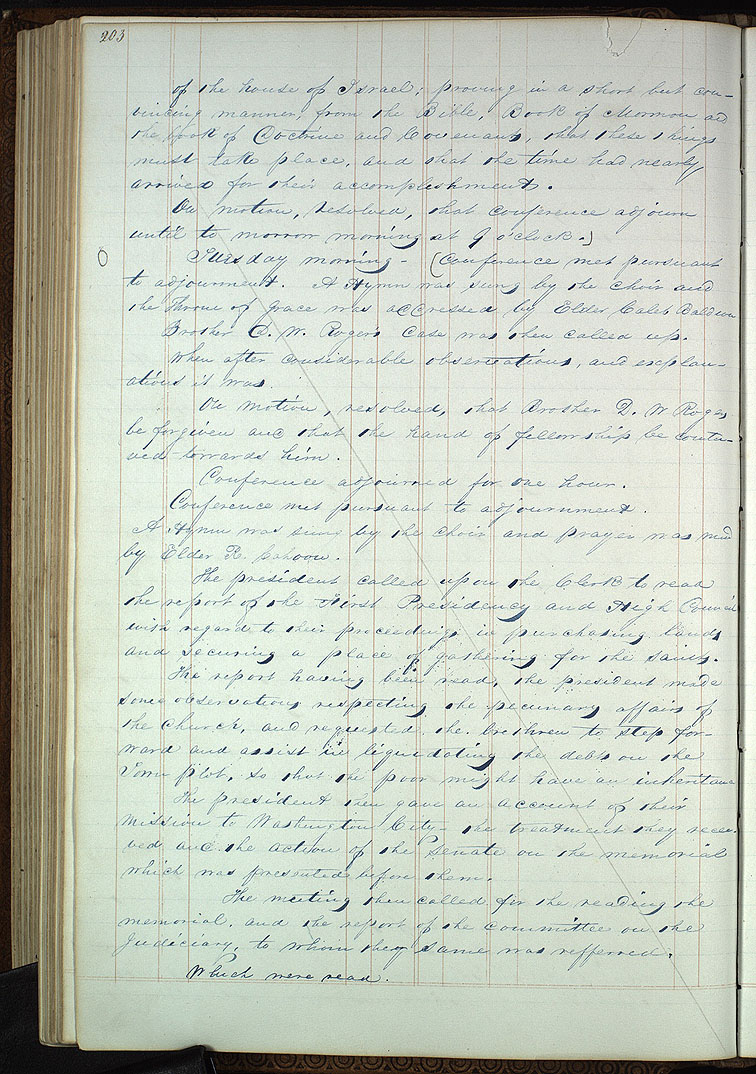 203
of the house of Israel; proving in a short but con-
vincing manner, from the Bible, Book of Mormon and
the book of Doctrine and Covenants, that these things
must take place, and that the time had nearly
arrived for their accomplishment.
On motion, resolved, that conference adjourn
until to morrow morning at 9 o'clock.)
Tuesday morning - (Conference met pursuant
to adjournment. A Hymn was sung by the choir and
the Throne of grace was addressed by Elder Caleb Baldwin
Brother D. W. Rogers case was then called up.
When after considerable observations, and explan-
ations it was.
On motion, resolved, that Brother D. W Rogers
be forgiven and that the hand of fellowship be contin-
ued towards him.
Conference adjourned for one hour.
Conference met pursuant to adjournment.
A Hymn was sung by the choir and prayer was md
by Elder R. Cahoon.
The president called upon the Clerk to read
the report of the First Presidency and High Council
with regard to their proceedings in purchasing lands
and securing a place of gathering for the saints.
The report having been read, the president made
some observations respecting the pecuniary affairs of
the Church, and requested the brethren to step for-
ward and assist in liquidating the debts on the
Town plot, so that the poor might have an inheritance
The president then gave an account of their
mission to Washington City - the treatment they recei-
ved and the action of the Senate on the memorial
which was presented before them.
The meeting then called for the reading the
memorial, and the report of the committee on the
Judiciary, to whom they same was refferred.
Which were read.